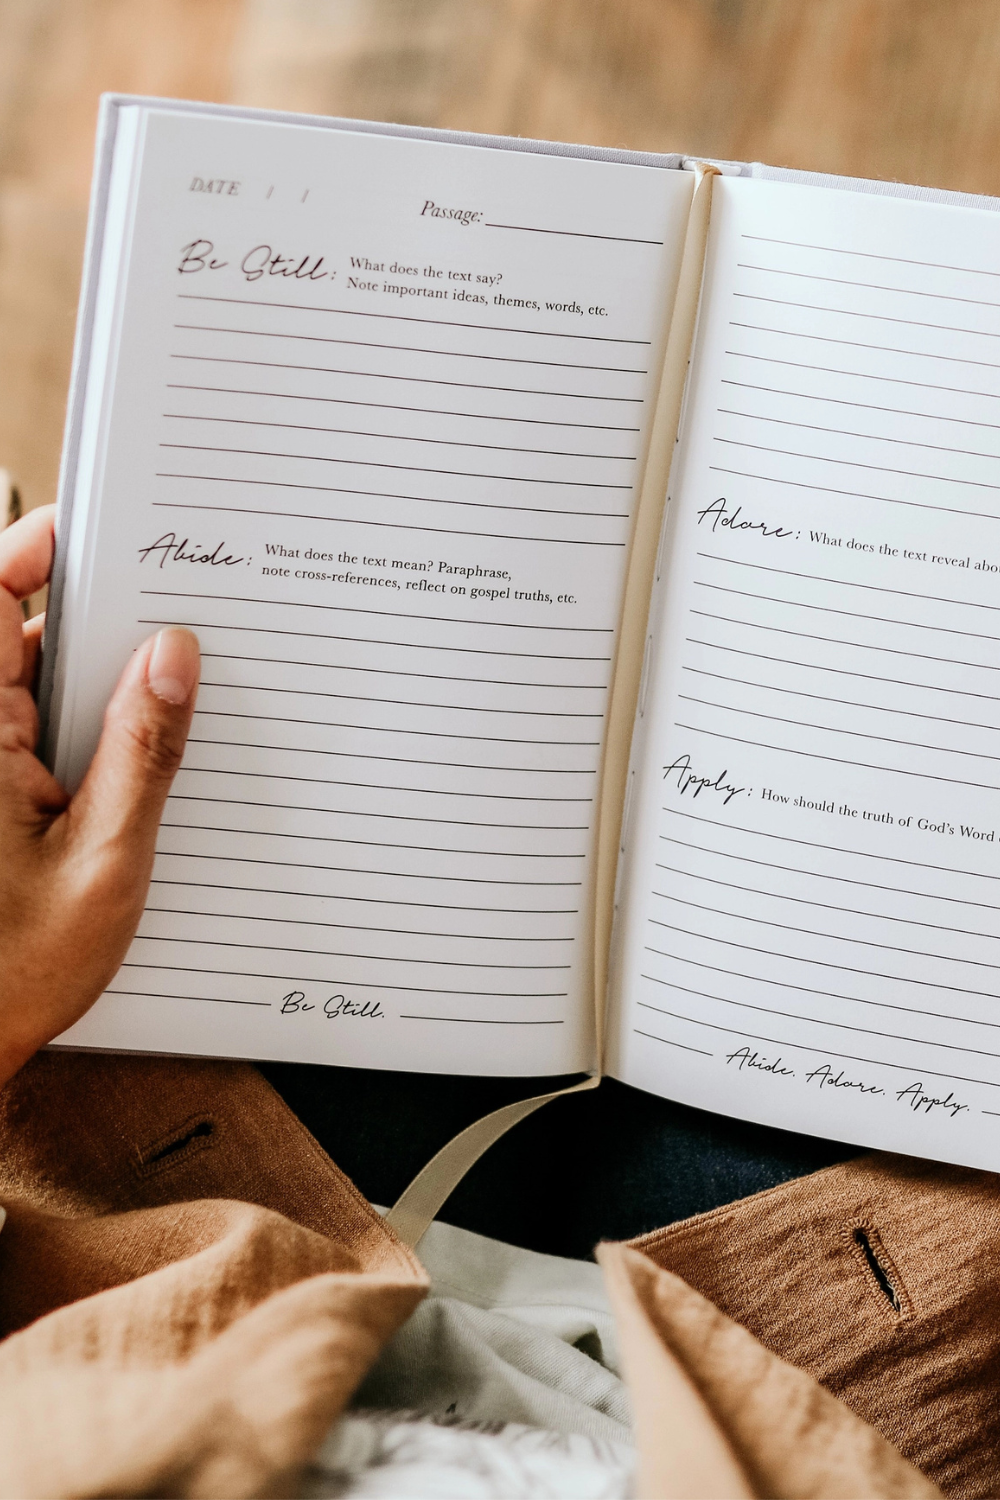 DATE / /
Passage:
Be Still: What does the text say?
Note important ideas, themes, words, etc.
Abide: What does the text mean? Paraphrase,
note cross-references, reflect on gospel truths, etc.
Be Still.
Adore: What does the text reveal
Apply: How should the truth of God's Word
Abide. Adore. Apply.